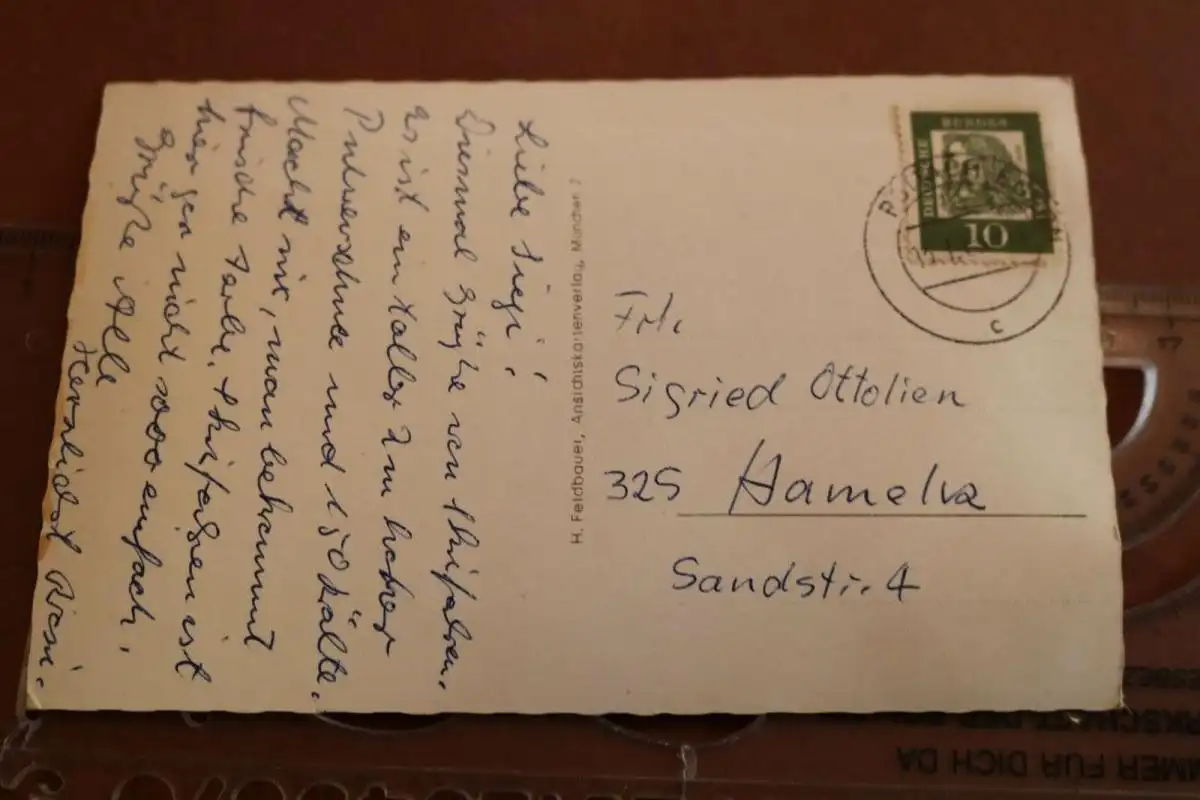 Liebe Siegi!
Diesmal Grüße vom Skifahren.
Es ist ein toller 2 m hoher
Pulverschnee und 15° Kälte.
Macht nix, man bekommt
frische Farbe. Skifahren ist
hier gar nicht sooo einfach.
Grüße Alle
Herzlichst Resi.
H. Feldbauer, Ansichtskartenverlag, München 2
DEUTSCHE
BUNDES
10
c
Frl.
Sigried Ottolien
325 Hameln
Sandstr. 4
MMER FÜR DICH DA